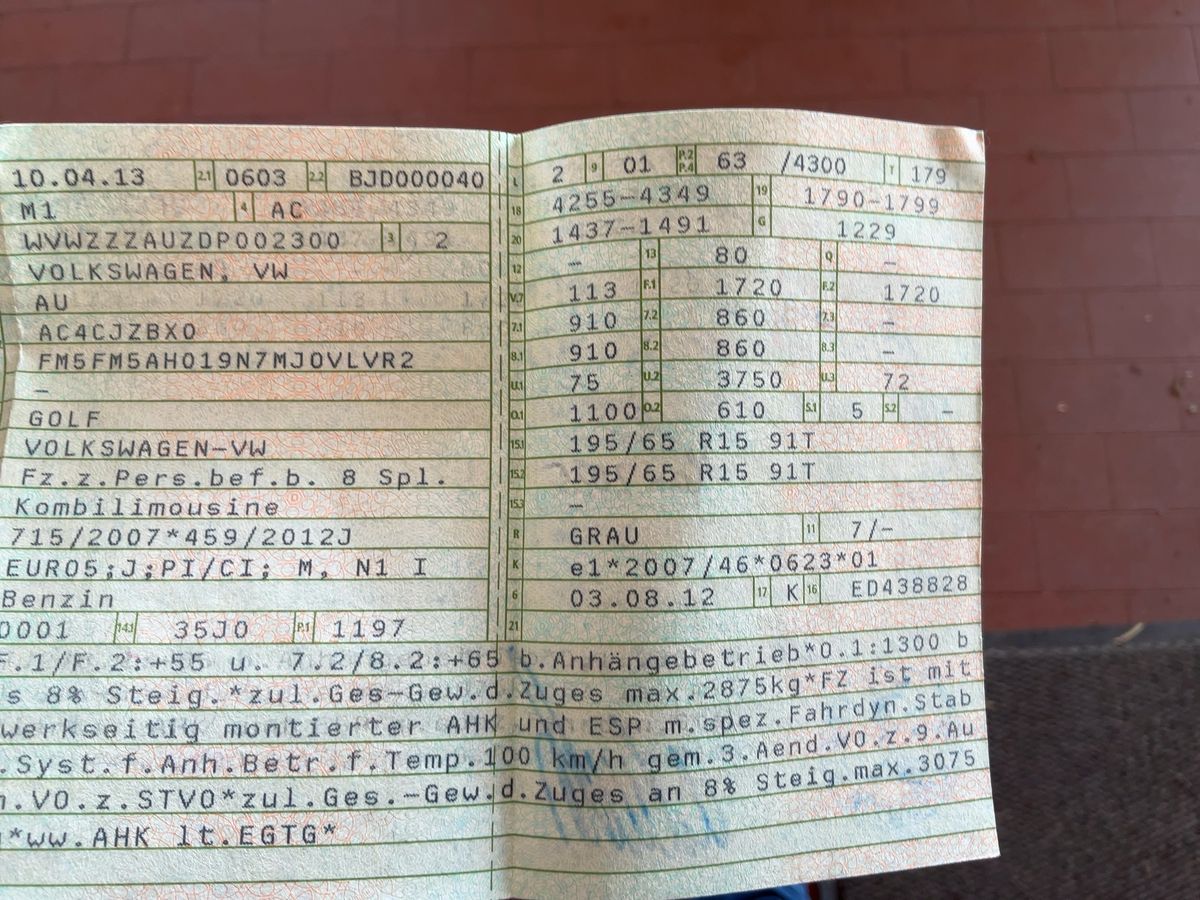 10.04.13 2.1 0603 2.2 BJD000040
M1 4 AC
WVWZZZAUZDP002300 3 2
VOLKSWAGEN, VW
AU
AC4CJZBX0
FM5FM5AH019N7MJOVLVR2
–
GOLF
VOLKSWAGEN-VW
Fz.z.Pers.bef.b. 8 Spl.
Kombilimousine
715/2007*459/2012J
EURO5;J;PI/CI; M, N1 I
Benzin
0001 14.1 35J0 P.1 1197
L 2 9 01 P.2 P.4 63 /4300 T 179
18 4255-4349 19 1790-1799
20 1437-1491 G 1229
12 – 13 80 Q –
V.7 113 F.1 1720 F.2 1720
7.1 910 7.2 860 7.3 –
8.1 910 8.2 860 8.3 –
U.1 75 U.2 3750 U.3 72
O.1 1100 O.2 610 S.1 5 S.2 –
15.1 195/65 R15 91T
15.2 195/65 R15 91T
15.3 –
R GRAU 11 7/-
K e1*2007/46*0623*01
6 03.08.12 17 K 16 ED438828
21
F.1/F.2:+55 u. 7.2/8.2:+65 b.Anhängebetrieb*O.1:1300 b
s 8% Steig.*zul.Ges-Gew.d.Zuges max.2875kg*FZ ist mit
werkseitig montierter AHK und ESP m.spez.Fahrdyn.Stab
.Syst.f.Anh.Betr.f.Temp.100 km/h gem.3.Aend.VO.z.9.Au
.VO.z.STVO*zul.Ges.-Gew.d.Zuges an 8% Steig.max.3075
*ww.AHK lt.EGTG*